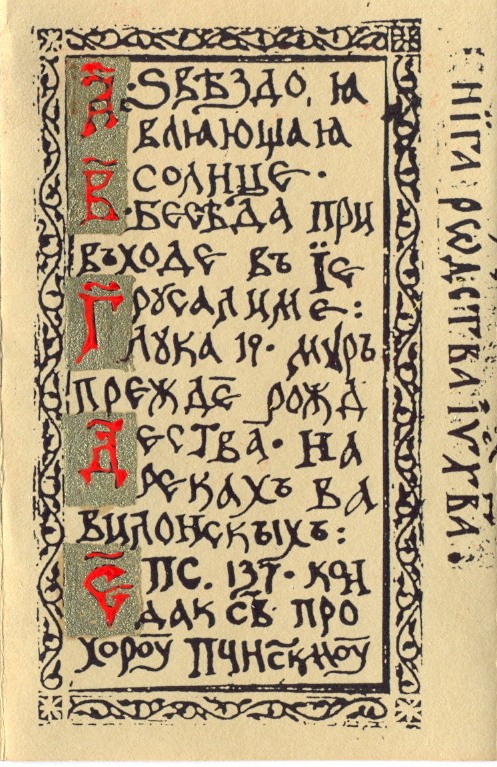 А҃ · Ѕвѣздо, ꙗ
влѧющаꙗ
солнце ·
В҃ · Бесѣда при
въходе въ Їе
Г҃ русалиме :
Лука 19 · миръ
прежде рожд
Д҃ ества · На
рѣкахъ ва
вилонскыхъ :
Е҃ Пс. 137 · Кон
дак св҃ Про
хороу Пчинскноу
нїга рѡдства їѵхва .